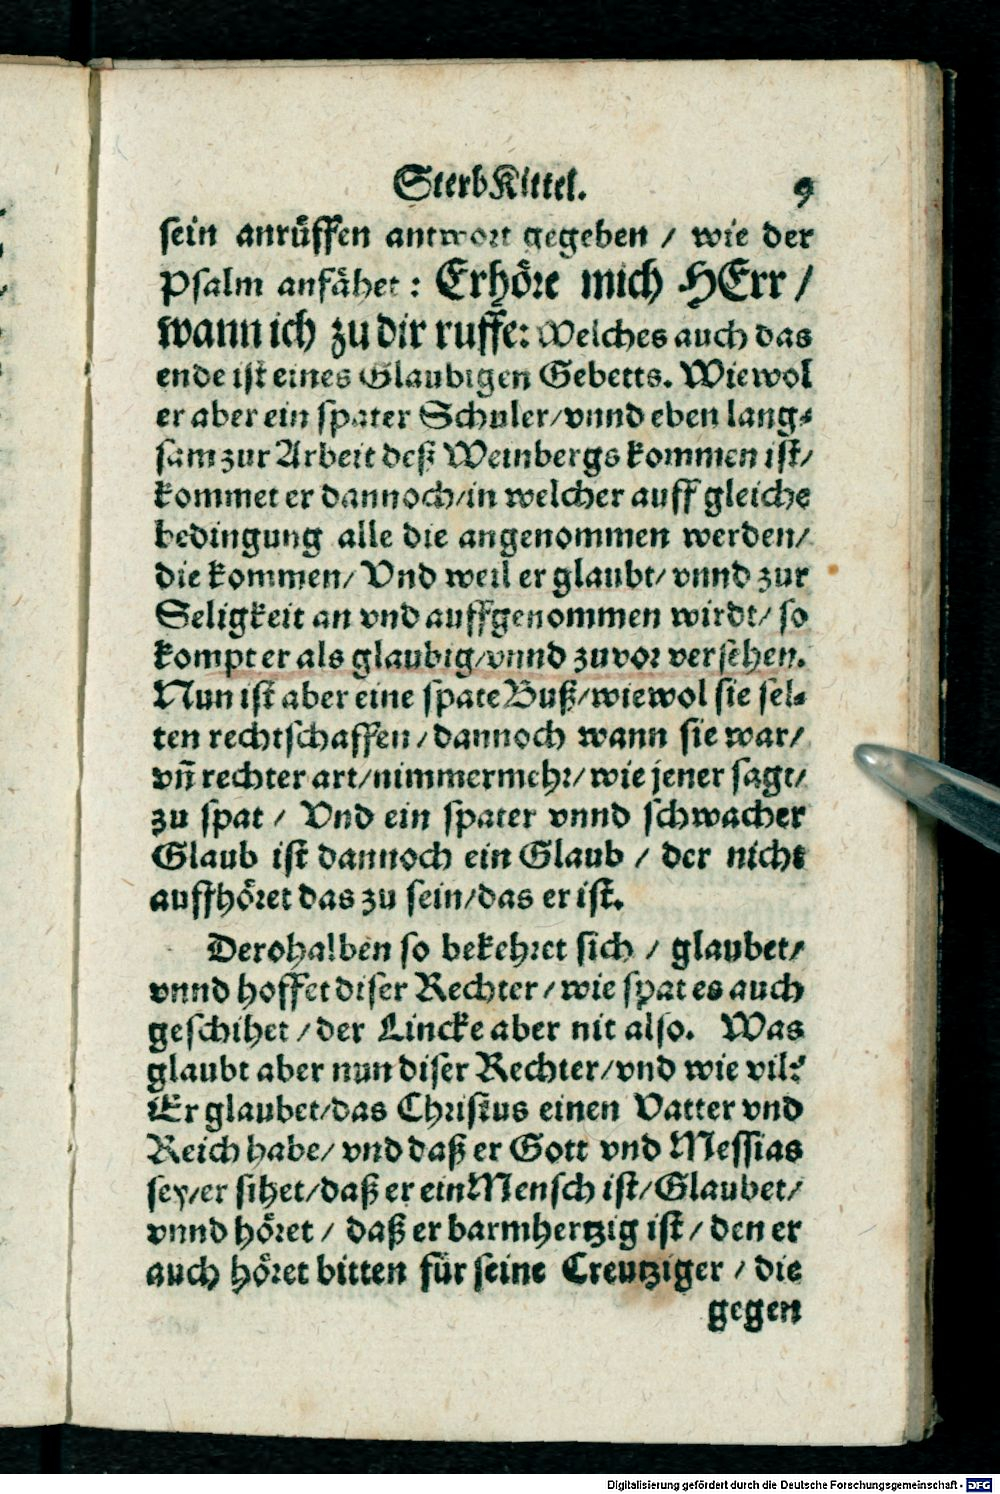 SterbKittel. 9
sein anrůffen antwort gegeben / wie der
Psalm anfåhet: Erhöre mich HErr /
wann ich zu dir ruffe: Welches auch das
ende ist eines Glaubigen Gebetts. Wiewol
er aber ein spater Schuler/vnnd eben lang-
sam zur Arbeit deß Weinbergs kommen ist/
kommet er dannoch/in welcher auff gleiche
bedingung alle die angenommen werden/
die kommen/ Vnd weil er glaubt/ vnnd zur
Seligkeit an vnd auffgenommen wirdt/ so
kompt er als glaubig/vnnd zuvor versehen.
Nun ist aber eine spate Buß/wiewol sie sel-
ten rechtschaffen/dannoch wann sie war/
vn̄ rechter art/nimmermehr/wie jener sagt/
zu spat / Vnd ein spater vnnd schwacher
Glaub ist dannoch ein Glaub / der nicht
auffhöret das zu sein/das er ist.
Derohalben so bekehret sich / glaubet/
vnnd hoffet diser Rechter/wie spat es auch
geschihet/der Lincke aber nit also. Was
glaubt aber nun diser Rechter/vnd wie vil?
Er glaubet/das Christus einen Vatter vnd
Reich habe/ vnd daß er Gott vnd Messias
sey/er sihet/daß er ein Mensch ist/Glaubet/
vnnd höret / daß er barmhertzig ist/ den er
auch höret bitten für seine Creutziger / die
gegen
Digitalisierung gefördert durch die Deutsche Forschungsgemeinschaft - DFG